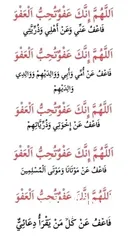 اَللَّهُمَّ إِنَّكَ عَفُوٌّ تُحِبُّ الْعَفْوَ
فَاعْفُ عَنِّي وَعَنْ أَهْلِي وَذُرِّيَّتِي
اَللَّهُمَّ إِنَّكَ عَفُوٌّ تُحِبُّ الْعَفْوَ
فَاعْفُ عَنْ أُمِّي وَأَبِي وَوَالِدِيهِمْ وَوَالِدِي
وَالِدِيْهِمْ
اَللَّهُمَّ إِنَّكَ عَفُوٌّ تُحِبُّ الْعَفْوَ
فَاعْفُ عَنْ إِخْوَتِي وَذُرِّيَّاتِهِمْ
اَللَّهُمَّ إِنَّكَ عَفُوٌّ تُحِبُّ الْعَفْوَ
فَاعْفُ عَنْ مَوْتَانَا وَمَوْتَى الْمُسْلِمِينَ
اَللَّهُمَّ إِنَّكَ عَفُوٌّ تُحِبُّ الْعَفْوَ
فَاعْفُ عَنْ كُلِّ مَنْ يَقْرَأُ دُعَائِي